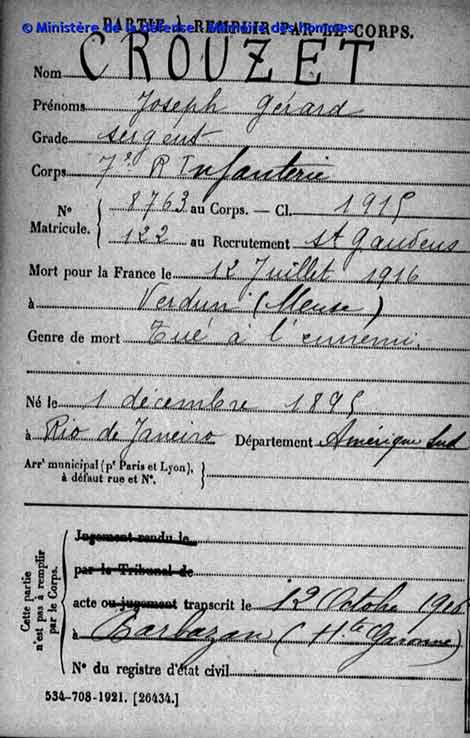 PARTIE À REMPLIR PAR LE CORPS.
© Ministère de la défense - Mémoire des hommes
Nom CROUZET
Prénoms Joseph Gérard
Grade Sergent
Corps 7e R Infanterie
N° Matricule. { 8763 au Corps. — Cl. 1915
122 au Recrutement St Gaudens
Mort pour la France le 12 Juillet 1916
à Verdun (Meuse)
Genre de mort Tué à l'ennemi.
Né le 1 décembre 1895
à Rio de Janeiro Département Amérique Sud
Arrt municipal (pr Paris et Lyon),
à défaut rue et N°.
Cette partie n'est pas à remplir par le Corps.
Jugement rendu le
par le Tribunal de
acte ou jugement transcrit le 12 Octobre 1916
à Barbazan (Hte Garonne)
N° du registre d'état civil
534-708-1921. [26434.]